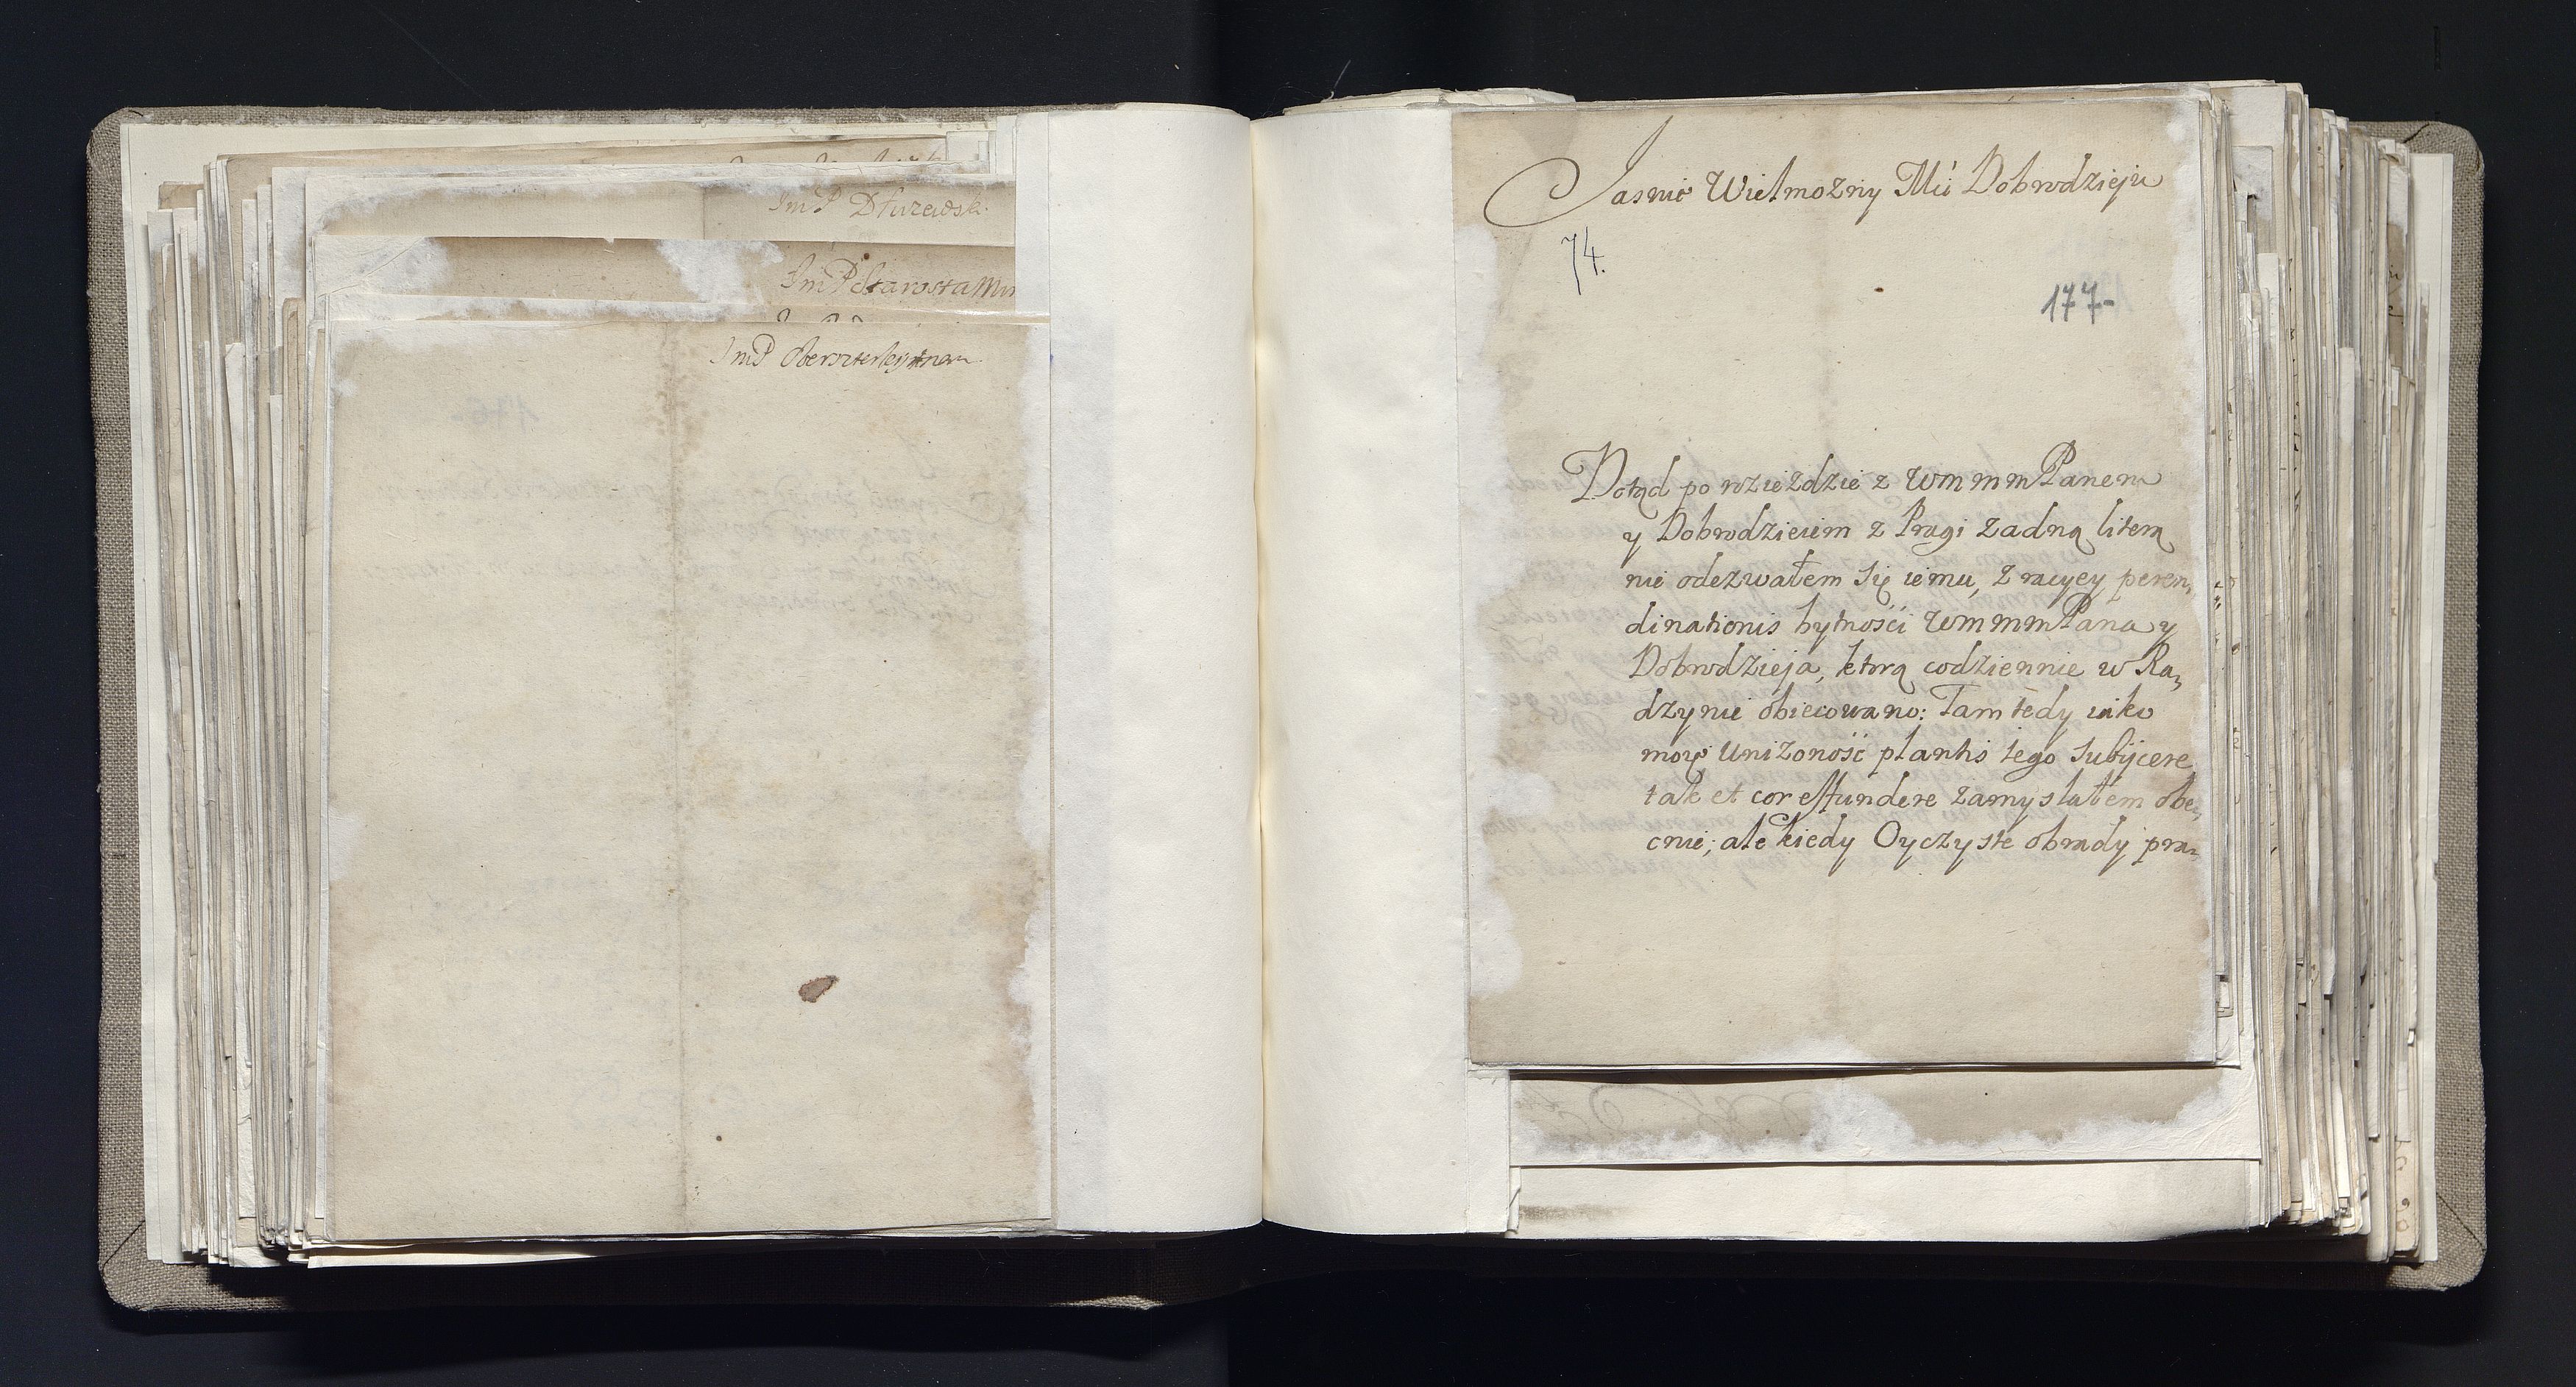 ImP Dłużewski
ImP Starosta
ImP
Jasnie Wielmozny Mći Dobrodzieju
74.
177-
Dotąd po rozieździe z WmmmPanem
y Dobrodzieiem z Pragi zadną literą
nie odezwałem się iemu, z racyey peren,
dinationis bytności WmmmPana y
Dobrodzieja, ktorą codziennie w Ra,
dzynie obiecowano: Tam tedy iako
moię uniżoność plantis iego subijcere
tak et cor effundere zamyslałem obe,
cnie; ale kiedy Oyczyste obrady pra,